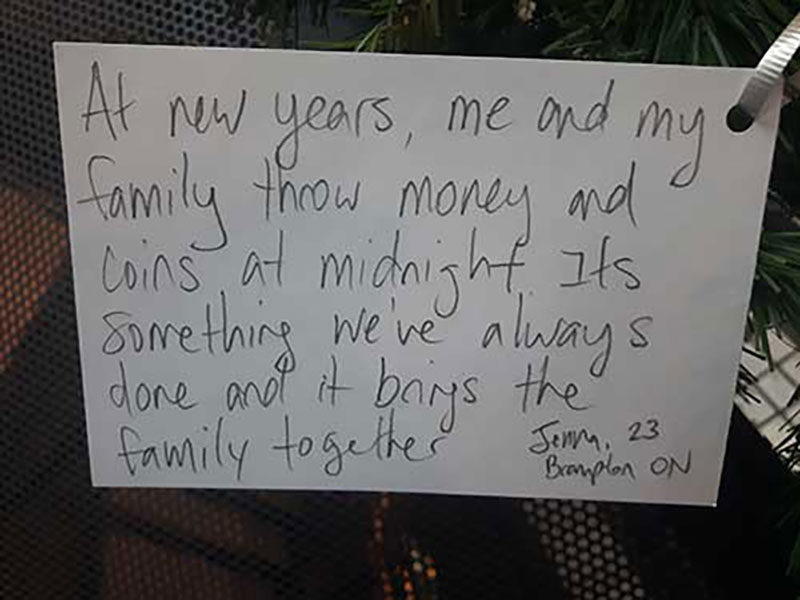 At new years, me and my
family throw money and
coins at midnight. Its
something we've always
done and it brings the
family together
Jenna, 23
Brampton ON